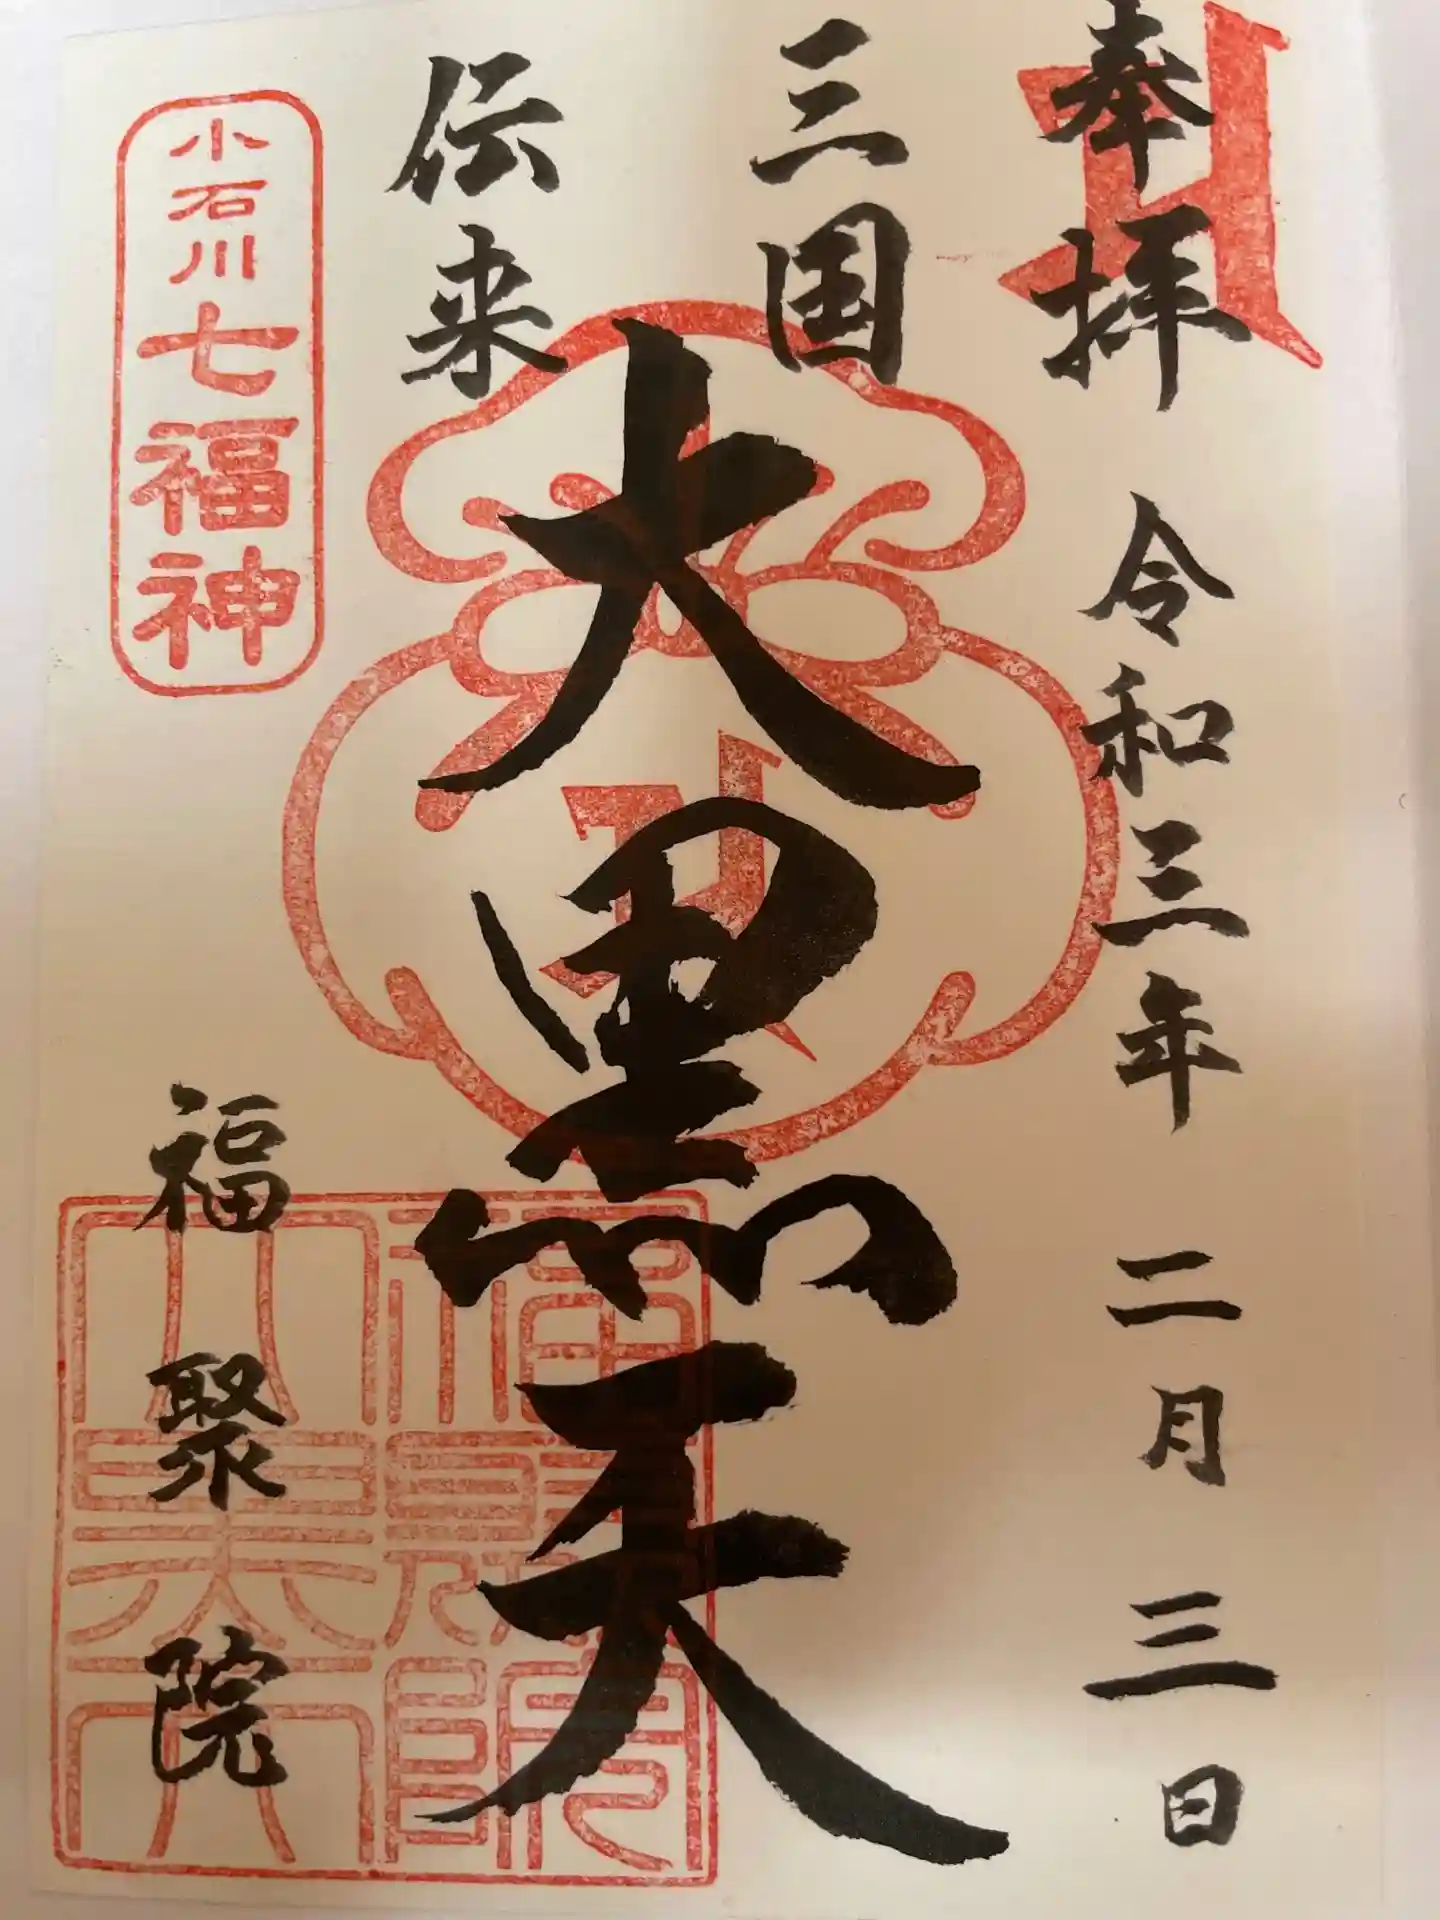 奉拝 令和三年 二月 三日
三国
大黒天
伝来
小石川七福神
福聚院